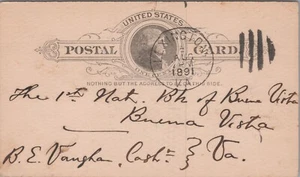 UNITED STATES
POSTAL CARD
NGTON
1891
VA.
NOTHING BUT THE ADDRESS TO BE ON THIS SIDE.
The 1st Nat. Bk of Buena Vista
Buena Vista
B. E. Vaughan, Cashr } Va.